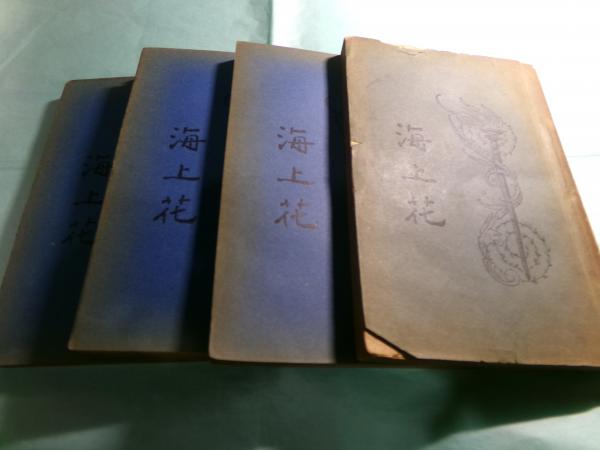 海上花
海上花
海上花
海上花